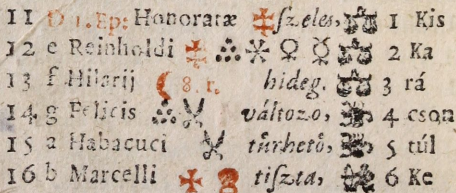 11 D 1. Ep: Honoratæ ſzeles, 1 Kis
12 e Reinholdi ♀ ☿ 2 Ka
13 f Hilarij ☾ 8. r. hideg. 3 rá
14 g Felicis változo, 4 cson
15 a Habacuci tůrhetó, 5 túl
16 b Marcelli tiſzta, 6 Ke